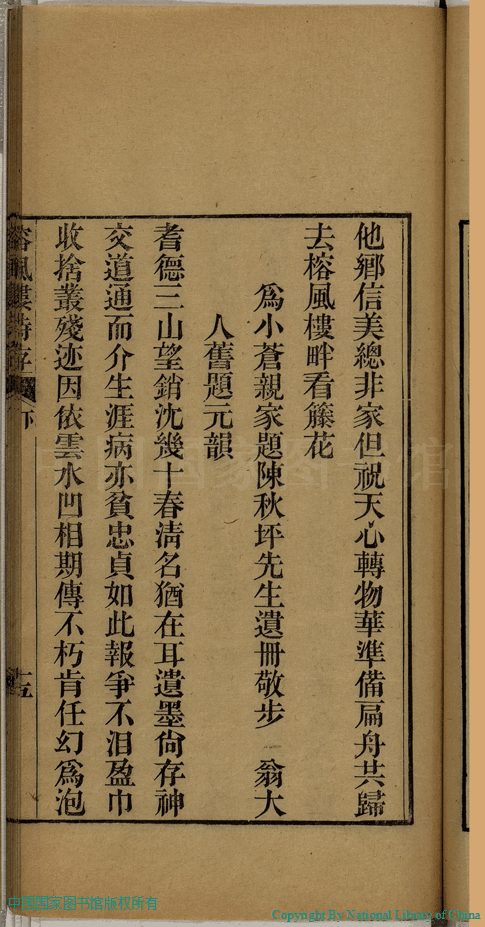 他鄉信美總非家但祝天心轉物華準備扁舟共歸
去榕風樓畔看籐花
爲小蒼親家題陳秋坪先生遺冊敬步 翁大
人舊題元韻
耆德三山望銷沈幾十春淸名猶在耳遺墨尙存神
交道通而介生涯病亦貧忠貞如此報爭不泪盈巾
收捨叢殘迹因依雲水凹相期傳不朽肯任幻爲泡
榕風樓詩存
十五
中国国家图书馆版权所有
Copyright By National Library of China